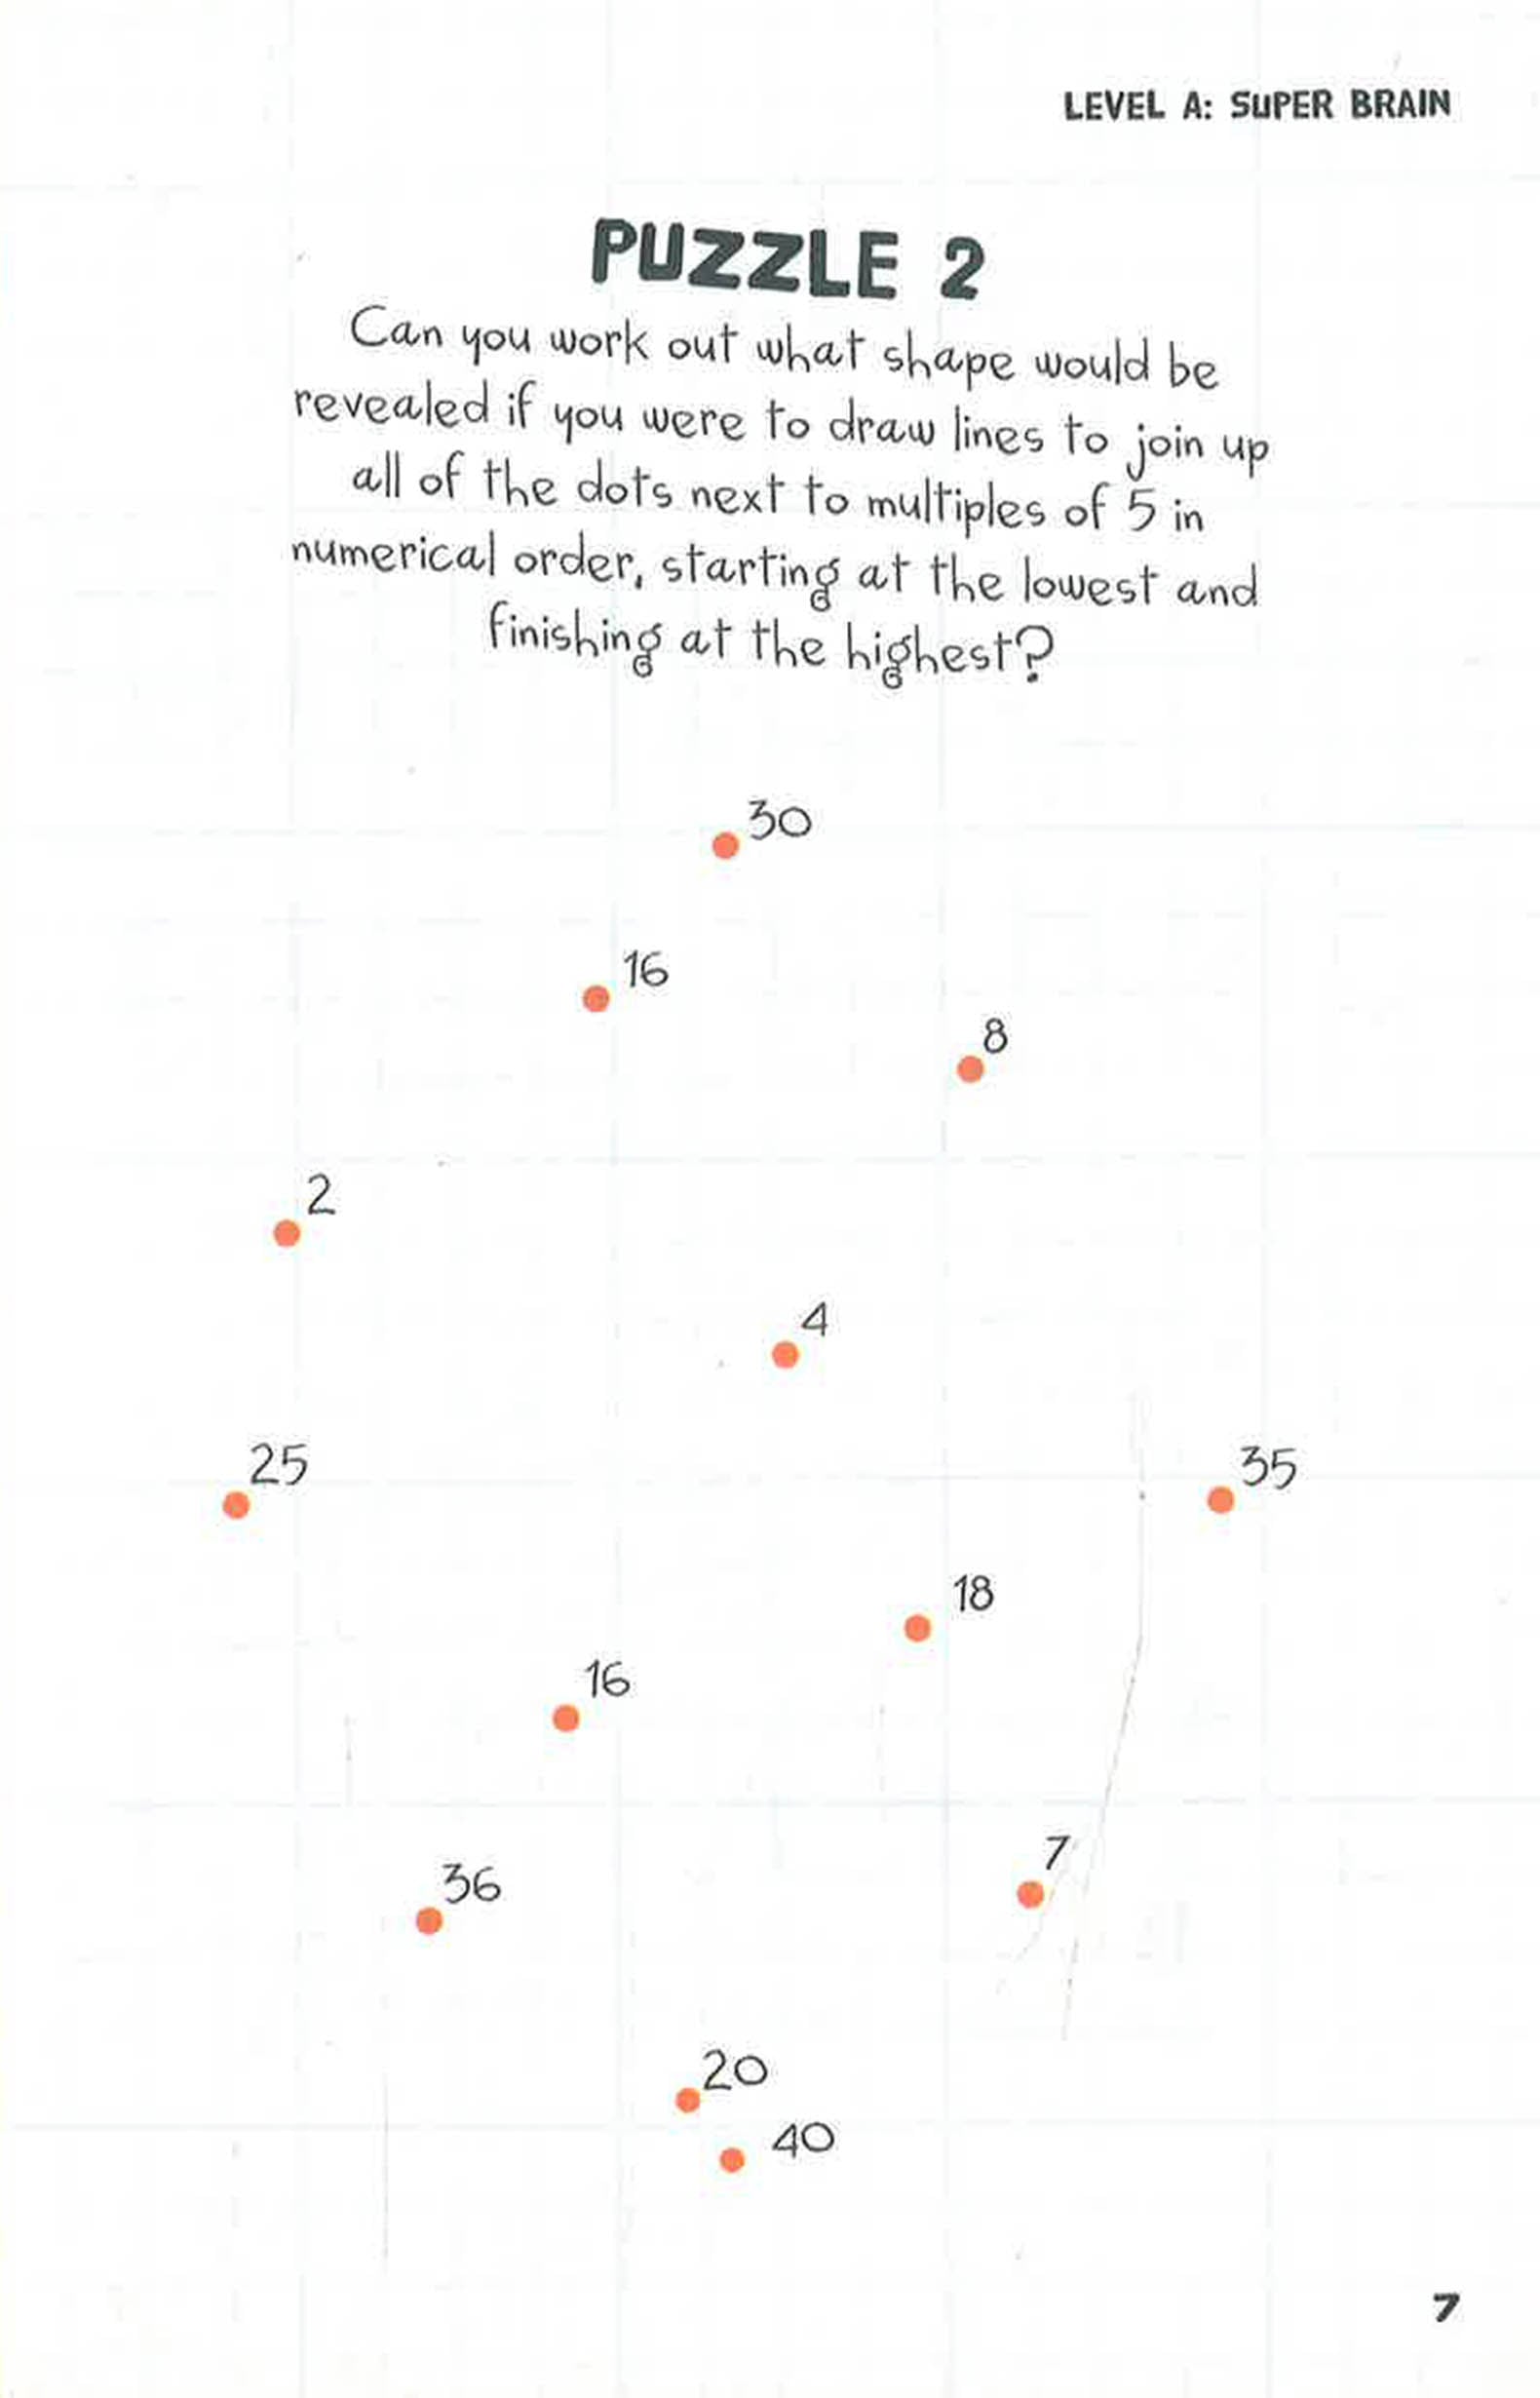 LEVEL A: SUPER BRAIN
PUZZLE 2
Can you work out what shape would be
revealed if you were to draw lines to join up
all of the dots next to multiples of 5 in
numerical order, starting at the lowest and
finishing at the highest?
30
16
8
2
4
25
35
18
16
7
36
20
40
7